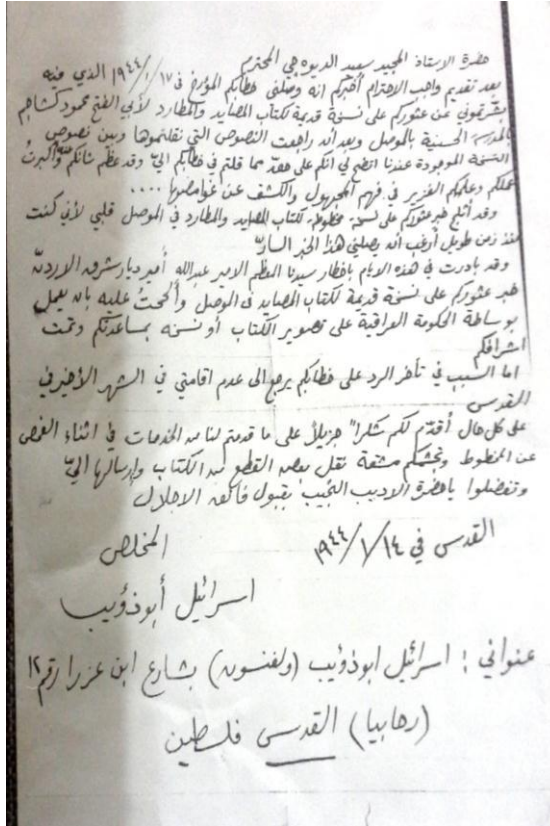 حضرة الاستاذ المجيد سعيد الديوه چي المحترم
بعد تقديم واجب الاحترام أخبركم انه وصلني خطابكم المؤرخ في ١٧/١/١٩٤٤ الذي فيه
بشرتموني عن عثوركم على نسخة قديمة لكتاب المصايد والمطارد لأبي الفتح محمود كشاجم
بالمدرسة الحسنية بالموصل وبعد أن راجعت النصوص التي نقلتموها وبين نصوص
النسخة الموجودة عندنا اتضح لي انكم على حق مما قلتم في خطابكم اليّ وقد عظم شأنكم وأكبرتُ
عملكم وعلمكم الغزير في فهم المجهول والكشف عن غوامضها ....
وقد أثلج خبر عثوركم على نسخة مخطوطة لكتاب المصايد والمطارد في الموصل قلبي لأني كنت
منذ زمن طويل أرغب أن يصلني هذا الخبر السارّ
وقد بادرت في هذه الايام باخطار سيدنا المعظم الامير عبدالله أمير ديار شرق الاردنّ
خبر عثوركم على نسخة قديمة لكتاب المصايد في الموصل وألححتُ عليه بان يعمل
بوساطة الحكومة العراقية على تصوير الكتاب أو نسخه بمساعدتكم وتحت
اشرافكم
اما السبب في تأخر الرد على خطابكم يرجع الى عدم اقامتي في الشهر الأخير في
القدس
على كل حال أقدّم لكم شكراً جزيلاً على ما قدمتم لنا من الخدمات في اثناء الفحص
عن المخطوط وتجشمكم مشقة نقل بعض القطع من الكتاب وإرسالها اليّ
وتفضلوا يا حضرة الاديب النجيب بقبول فائق الاجلال
القدس في ١٤/١/١٩٤٤ المخلص
اسرائيل أبو ذؤيب
عنواني : اسرائيل ابو ذؤيب (ولفنسون) بشارع ابن عزرا رقم ١٢
(رحابيا) القدس فلسطين